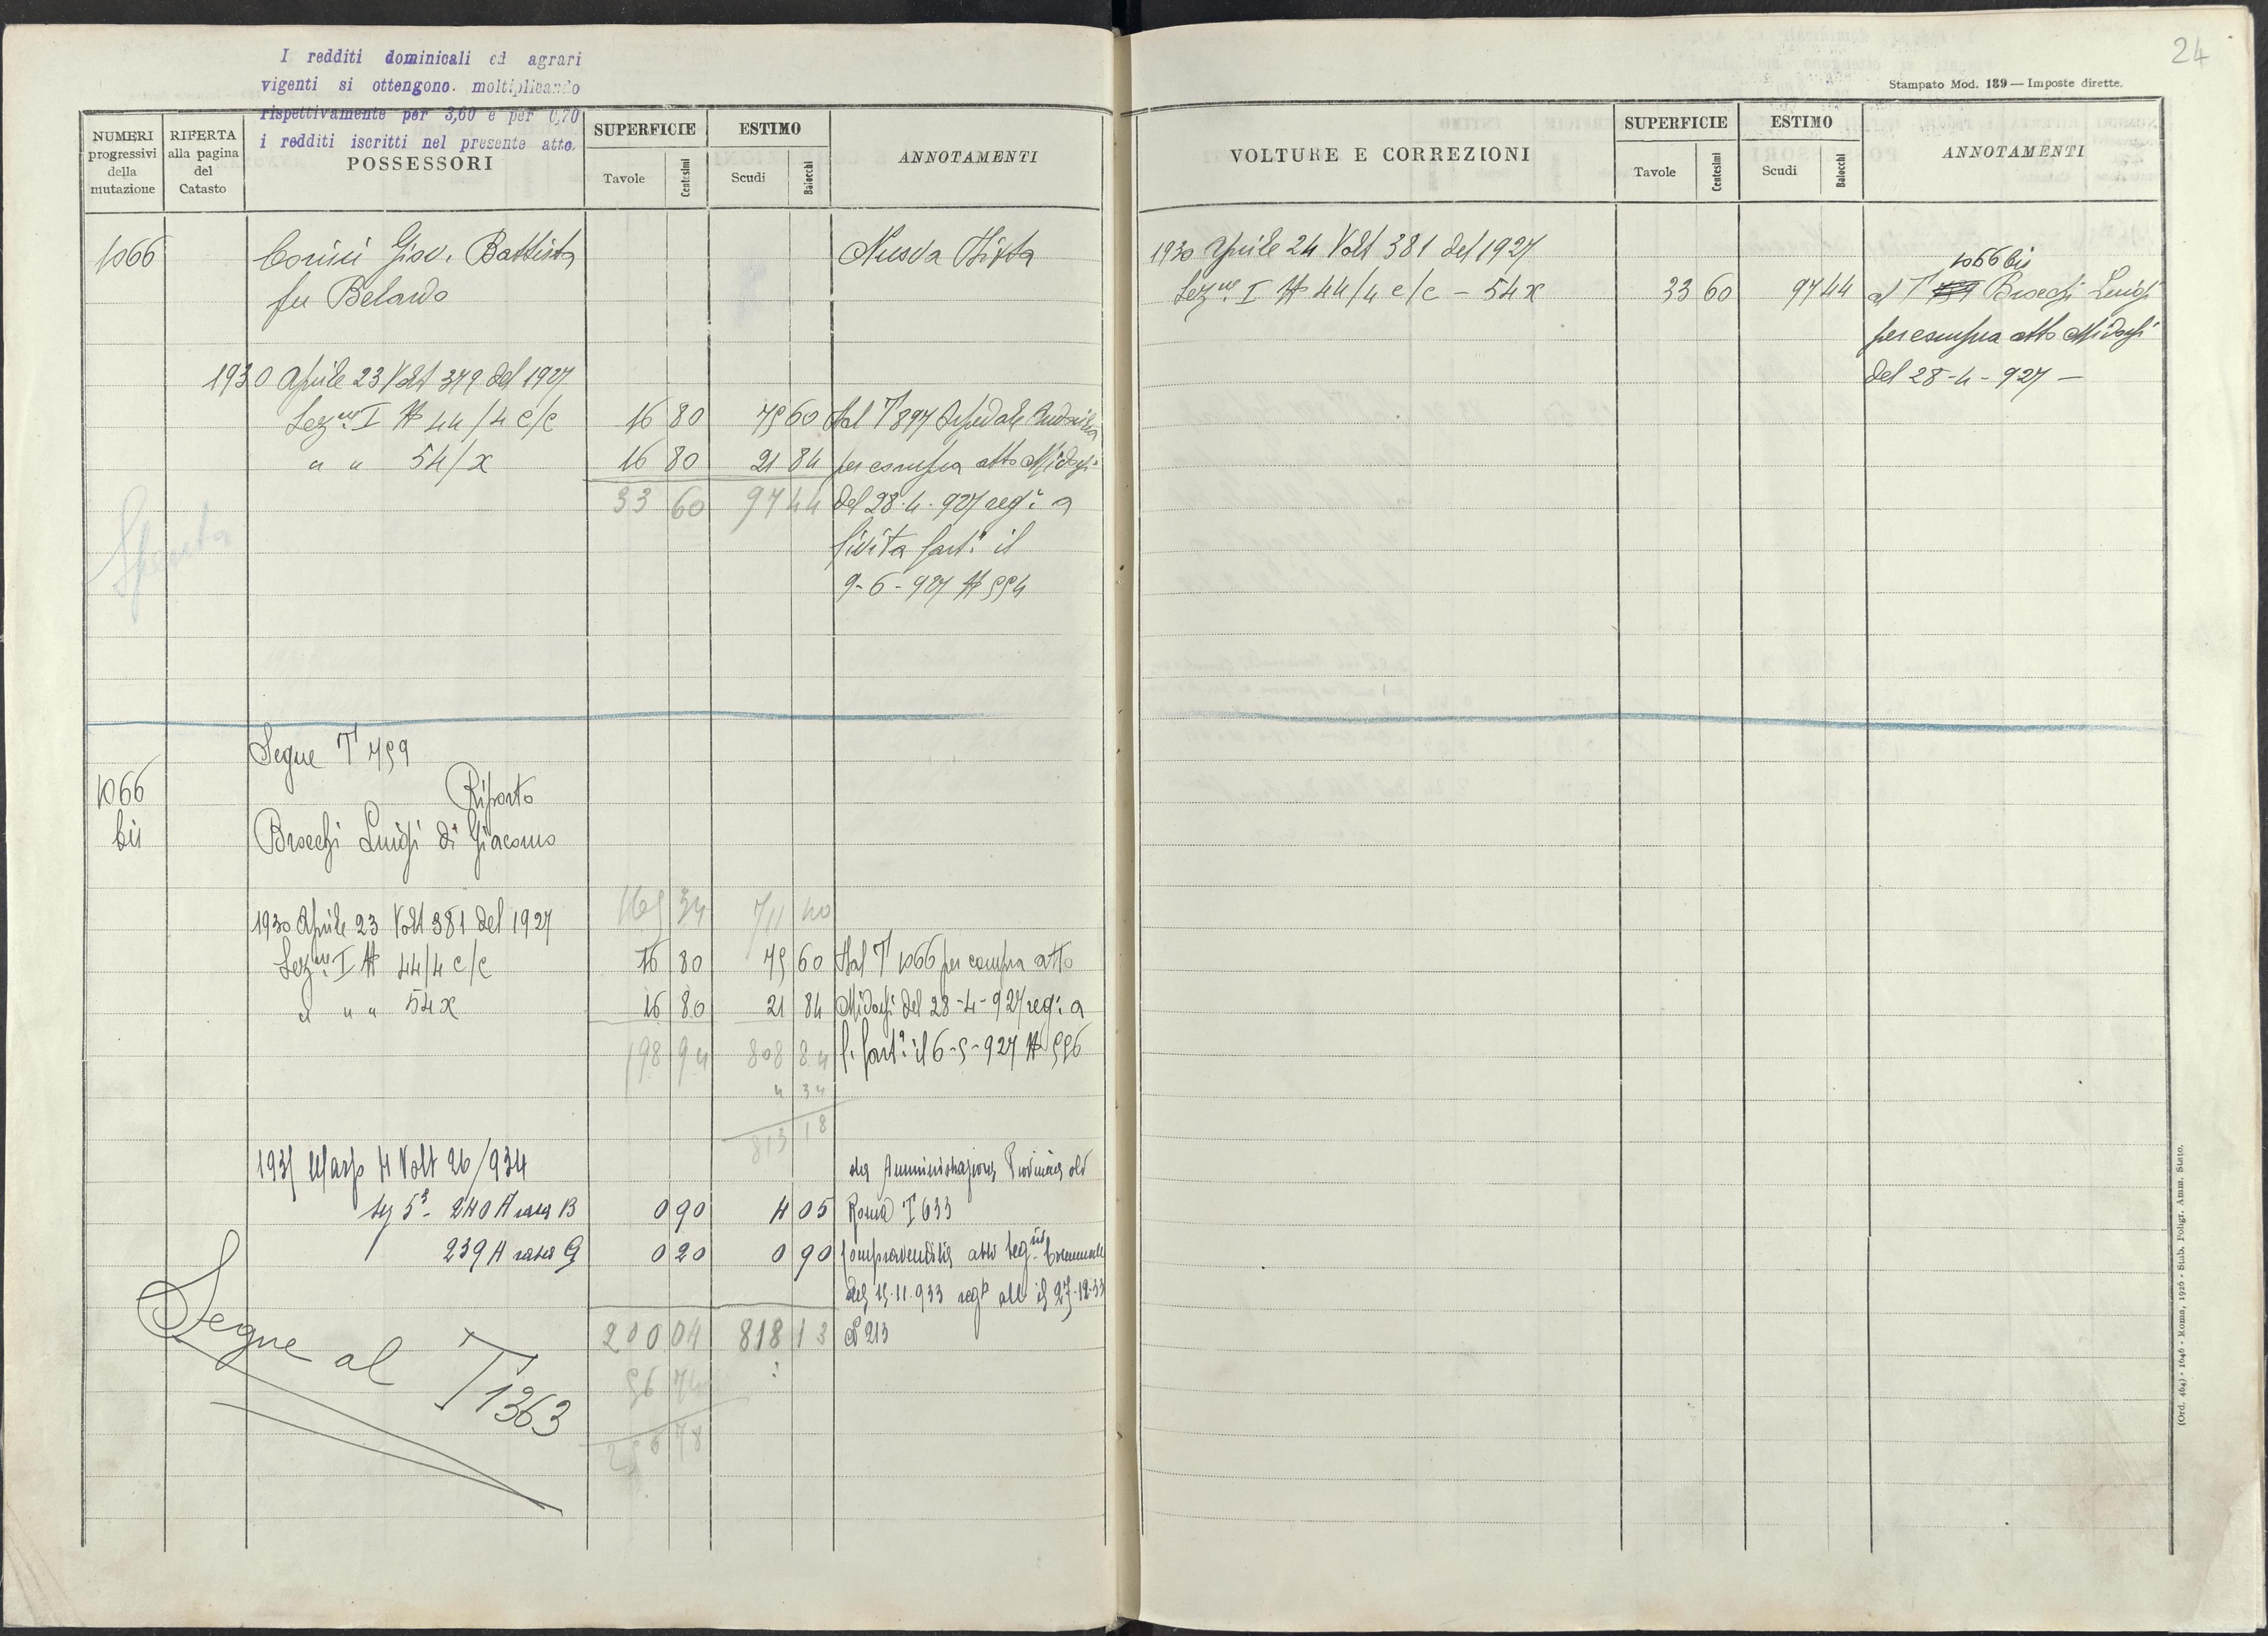 I redditi dominicali ed agrari
vigenti si ottengono moltiplicando
rispettivamente per 3,60 e per 0,70
i redditi iscritti nel presente atto.
NUMERI progressivi della mutazione
RIFERTA alla pagina del Catasto
POSSESSORI
SUPERFICIE
Tavole Centesimi
ESTIMO
Scudi Baiocchi
ANNOTAMENTI
1066 Giov. Battista Nuova Ditta
fu Belardo
1930 Aprile 23 Volt 379 del 1927
Sezne I N 44/4 c/c 16 80 75 60 Dal T 897 Ospedale
" " 54/x 16 80 21 84 per compra atto Midossi
33 60 97 44 del 28-4-927 reg: a
Civita Cast: il
9-6-927 N 554
Spenta
Segue T 759
Riporto
1066 bis Brocchi Luigi di Giacomo
165 34 711 40
1930 Aprile 23 Volt 381 del 1927
Sezne I N 44/4 c/c 16 80 75 60 Dal T 1066 per compra atto
" " " 54x 16 80 21 84 Midossi del 28-4-927 reg: a
198 94 808 84 C. Cast: il 6-5-927 N 556
4 34
813 18
Volt 26/934 Provincia di
sez 5ª 240 A rata B 0 90 4 05 Roma T 633
239 A rata G 0 20 0 90 Compravendita atto Segrio Comunale
del 15.11.933 27-12-33
200 04 818 13 N 213
56 74
256 78
Segue al T 1363
24
Stampato Mod. 189 — Imposte dirette.
VOLTURE E CORREZIONI
SUPERFICIE
Tavole Centesimi
ESTIMO
Scudi Baiocchi
ANNOTAMENTI
1930 Aprile 24 Volt 381 del 1927
1066 bis
Sezne I N 44/4 c/c - 54x 33 60 97 44 al T 759 Brocchi Luigi
per compra atto Midossi
del 28-4-927 —
(Ord. 464) - 1646 - Roma, 1926 - Stab. Poligr. Amm. Stato.